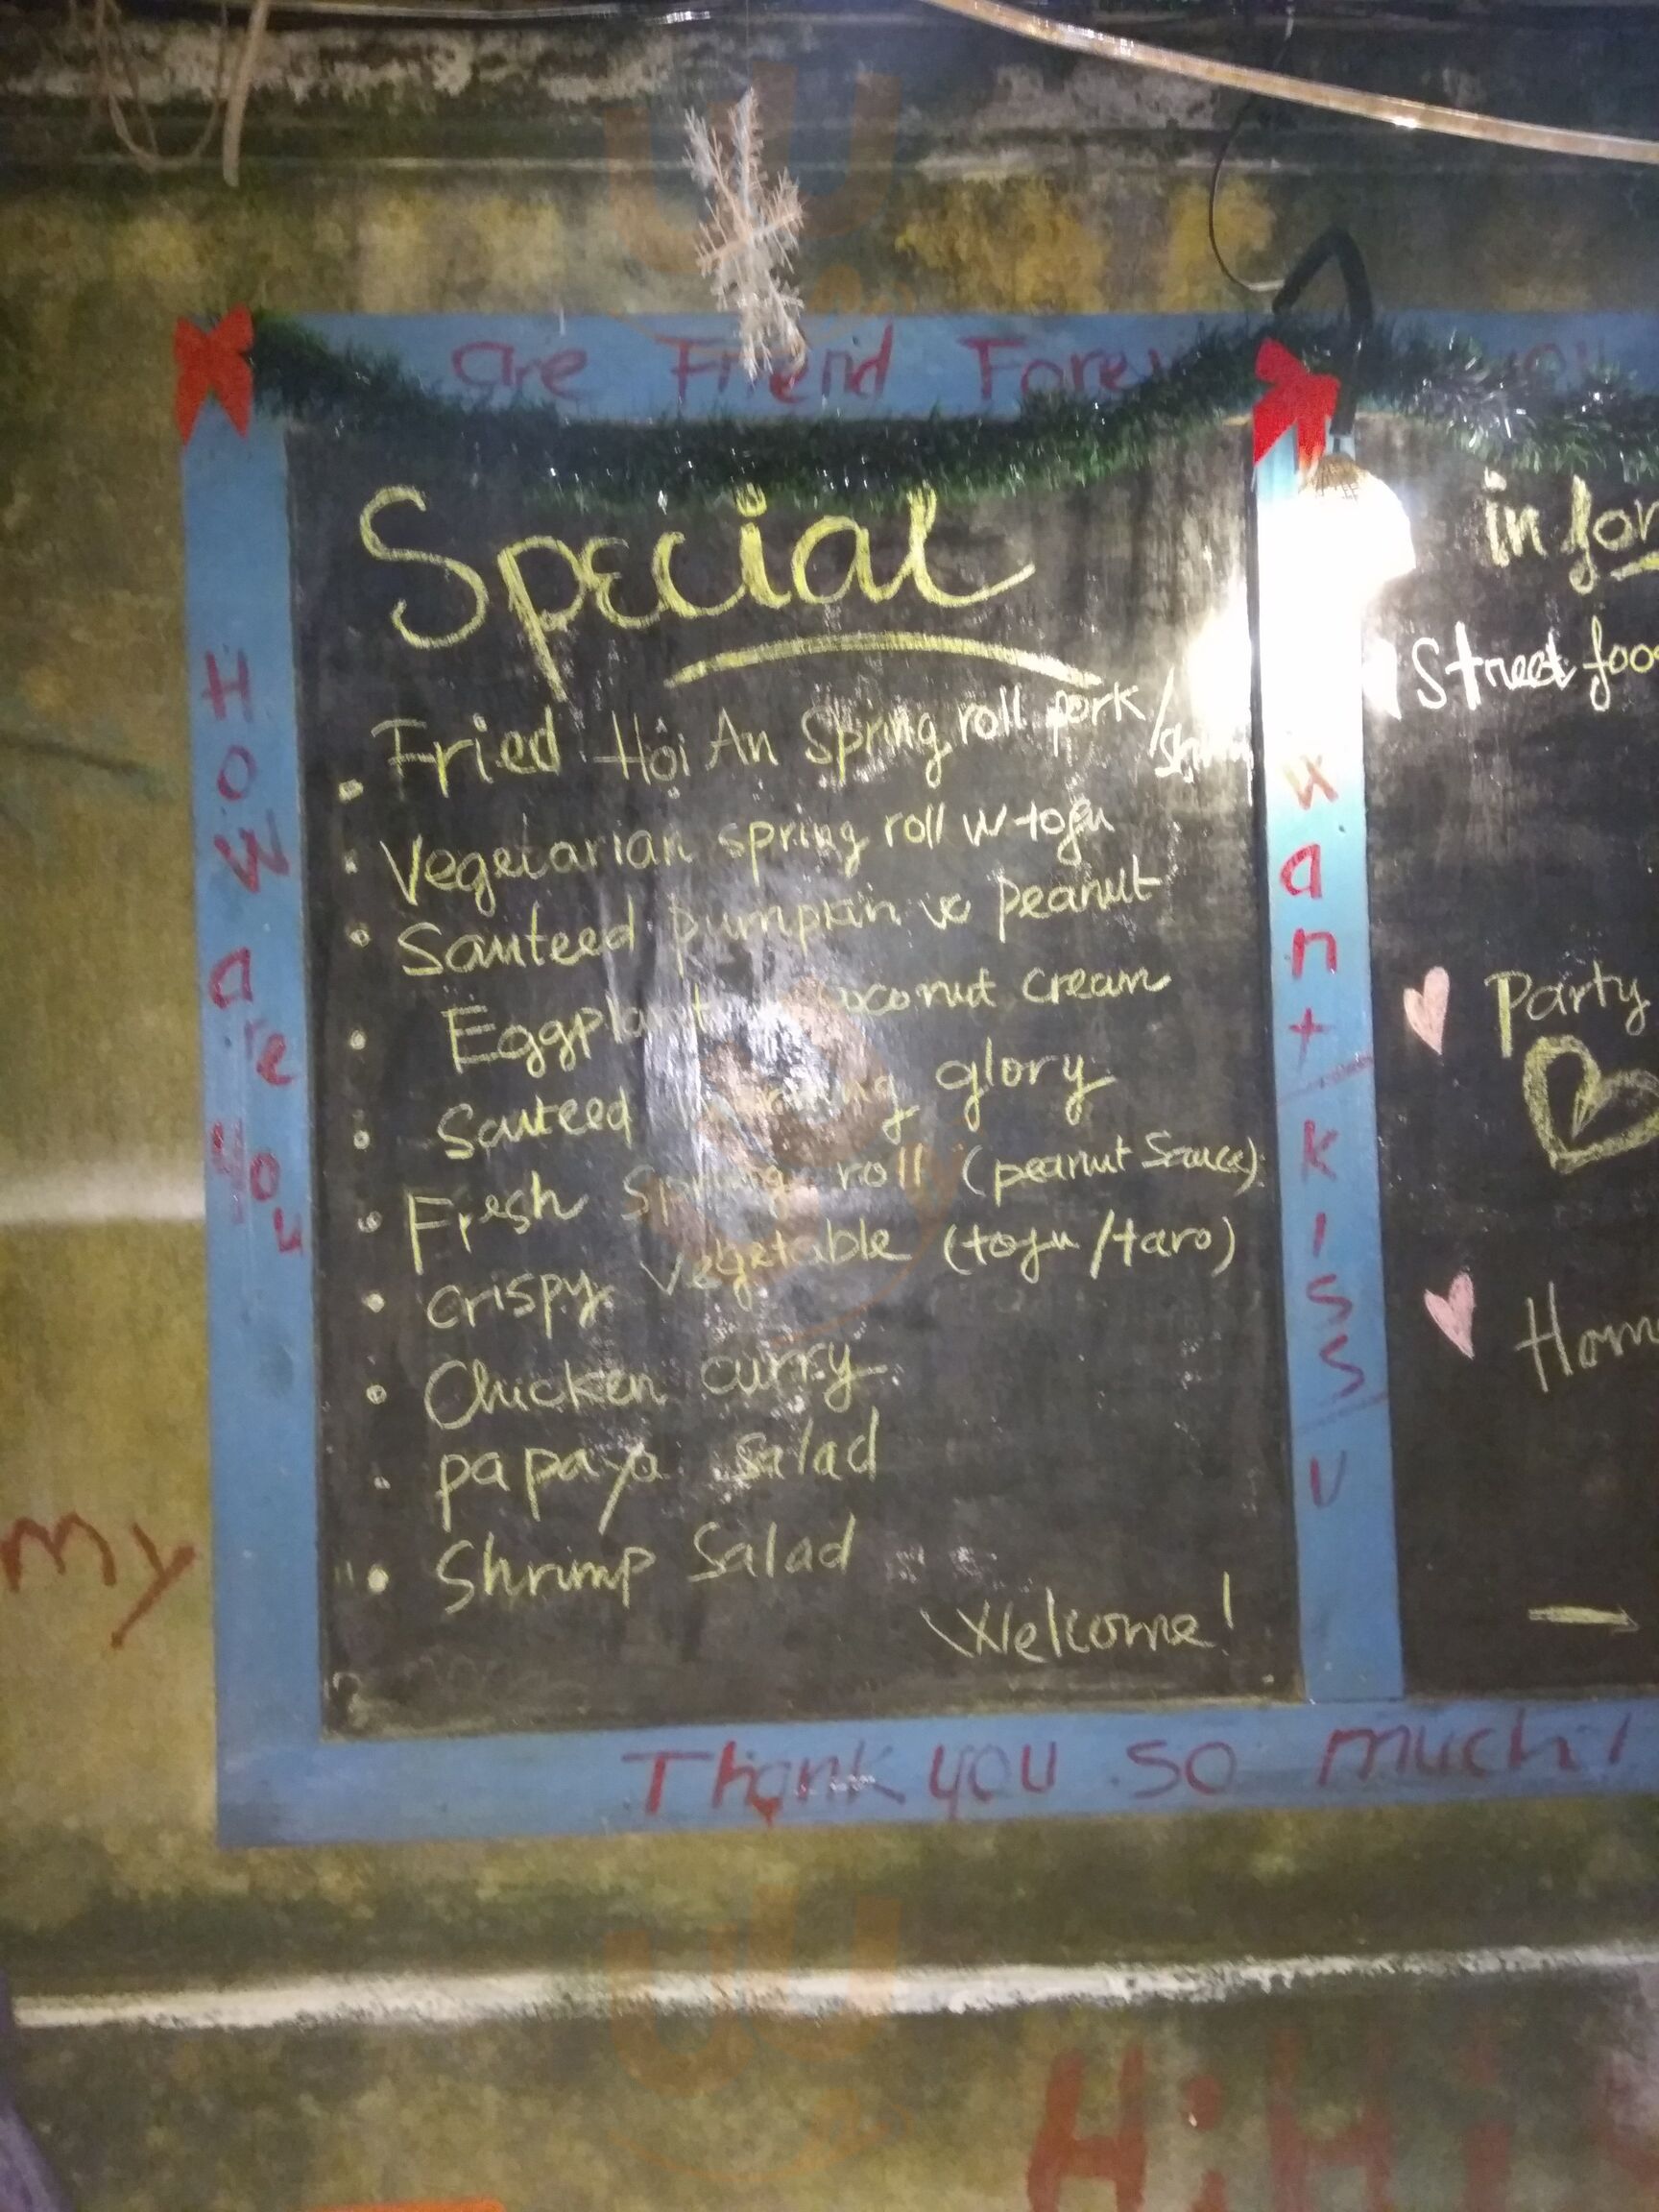 are Friend Forev
you
HOW are you
Special
Fried Hội An Spring roll pork/
Vegetarian spring roll w tofu
Sauteed pumpkin w peanut
Eggplant coconut cream
Sauteed morning glory
Fresh Spring roll (peanut Sauce)
crispy vegetable (tofu/taro)
Chicken curry
papaya salad
Shrimp Salad
Welcome!
want kISS U
in for
Street foo
Party
Hom
my
Thank you so much!
Hi Hi